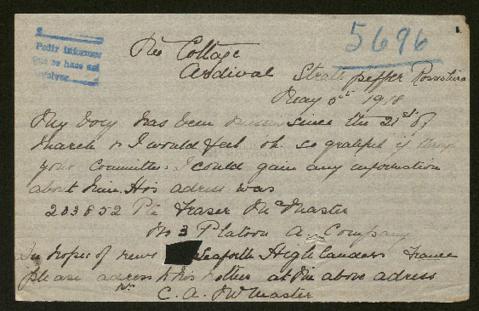 Pedir informes
que se hace así
5696
The Cottage
Ardival Strathpeffer Ross shire
May 6th 1918
My boy has been missing since the 21st of
March & I would feel oh so grateful if through
your Committee I could gain any information
about him. His adress was
203852 Pte Fraser McMaster
No 3 Platoon A Company
In hopes of news Seaforth Highlanders France
please adress to his Mother at the above adress
C. A. McMaster